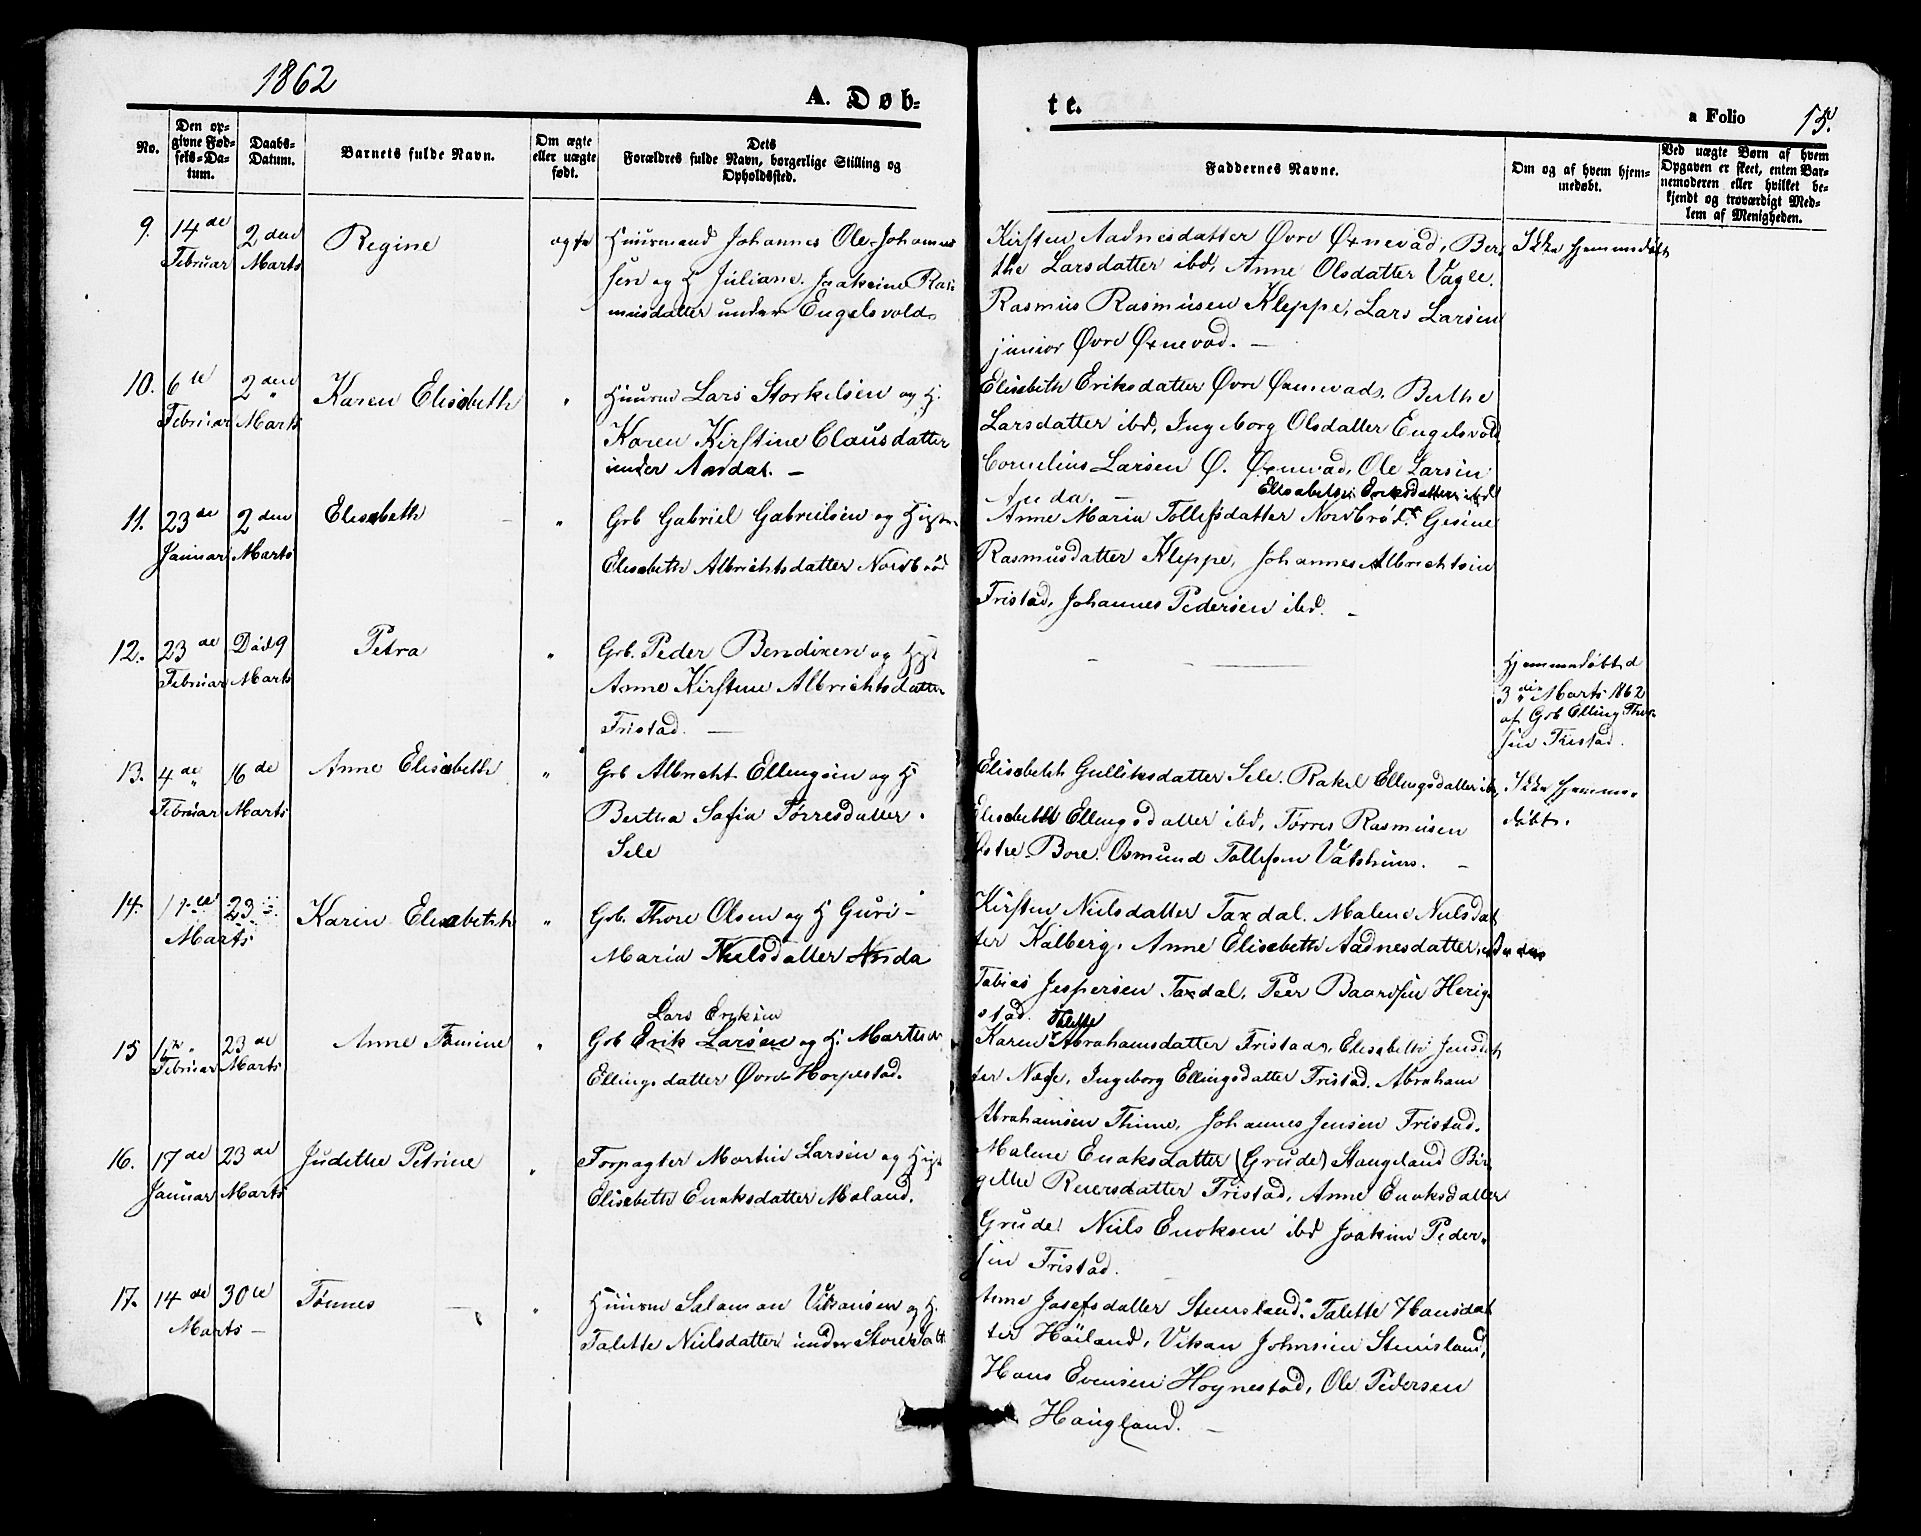 1862
A. Døb-
te.
a Folio 15.
No.
Den op-
givne Fød-
sels-Da-
tum.
Daabs-
Datum.
Barnets fulde Navn.
Om ægte
eller uægte
født.
Dets
Forældres fulde Navn, borgerlige Stilling og
Opholdssted.
Faddernes Navne.
Om og af hvem hjem-
medøbt.
Ved uægte Børn af hvem
Opgaven er skeet, enten Bar-
nemoderen eller hvilket be-
kjendt og troværdigt Med-
lem af Menigheden.
9. 14de
Februar
2den
Marts
Regine
ægte
Huusmand Johannes Ole Johannes
sen og H Juliane Joakime Ras
musdatter under Engelsvold.
Kirsten Aadnesdatter Øvre Øxnevad, Ber
the Larsdatter ibd, Anne Olsdatter Vagle.
Rasmus Rasmusen Kleppe, Lars Larsen
junior Øvre Øxnevad. —
Ikke hjemmedøbt
10. 6te
Februar
2den
Marts
Karen Elisabeth
"
Huusm Lars Storkelsen og H.
Karen Kirstine Clausdatter
under Aardal. —
Elisebeth Eriksdatter Øvre Øxnevad, Berthe
Larsdatter ibd, Ingeborg Olsdatter Engelsvold
Cornelius Larsen Ø. Øxnevad, Ole Larsen
Anda. —
Elisabeth Eriksdatter ibd
11. 23de
Januar
2den
Marts
Elisabeth —
"
Grb Gabriel Gabrielsen og Hust
Elisebeth Albrichtsdatter Nordbrød
Anne Maria Tollefsdatter Nordbrød. Gesine
Rasmusdatter Kleppe, Johannes Albrichtsen
Fristad, Johannes Pedersen ibd. —
12. 23de
Februar
Død 9
Marts
Petra
"
Grb. Peder Bendixen og Hust
Anne Kirstine Albrichtsdatter
Fristad. —
Hjemmedøbt d
3die Marts 1862
af Grb Elling Thor
sen Fristad.
13. 4de
Februar
16de
Marts
Anne Elisabeth
"
Grb Albricht Ellingsen og H
Bertha Sofia Tørresdatter.
Sele
Elisebeth Gulliksdatter Sele. Rakel Ellingsdatter ibd,
Elisebeth Ellingsdatter ibd, Tørres Rasmusen
Østre Bore. Osmund Tollefsen Vatshuus. —
Ikke hjemme-
døbt.
14. 23
Marts
Karen Elisabeth
"
Grb. Thore Olsen og H Guri-
Maria Nielsdatter Anda
Kirsten Nielsdatter Taxdal. Malene Nielsdat
ter Kalberg, Anne Elisebeth Aadnesdatter,
Tobias Jespersen Taxdal, Peer Baardsen Herig
stad.
15 1ste
Februar
23de
Marts
Anne Tomine
"
Lars Eriksen
Grb Erik Larsen og H. Martha
Ellingsdatter Øvre Horpestad.
Talette
Karen Abrahamsdatter Fristad, Elisabeth Jensdat
ter Næse, Ingeborg Ellingsdatter Fristad. Abraham
Abrahamsen Thime, Johannes Jensen Fristad.
16. 17de
Januar
23de
Marts
Judithe Petrine
"
Forpagter Martin Larsen og Hust
Elisebeth Enoksdatter Moland.
Malene Enoksdatter (Grude) Stangeland Bir
githe Reiersdatter Fristad, Anne Enoksdatter
Grude, Niels Enoksen ibd Joakim Peder-
sen Fristad.
17. 14de 30te
Marts —
Tønnes —
"
Huusm Salamon Vikansen og H.
Talette Nielsdatter under Store
Anne Josefsdatter Steensland. Talette Hansdat
ter Høiland, Vikan Johnsen Steensland,
Hans Evensen Hognestad, Ole Pedersen
Haugland. —